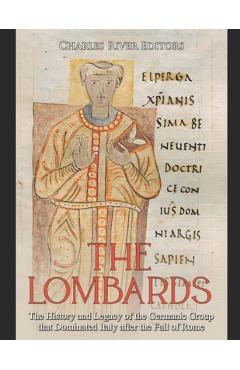 CHARLES RIVER EDITORS
ELPERGA
XPIANIS
SIMA BE
NEVENTI
DOCTRI
CE CON
IUS DOM
NI ARGIS
SAPIEN
THE
LOMBARDS
The History and Legacy of the Germanic Group
that Dominated Italy after the Fall of Rome